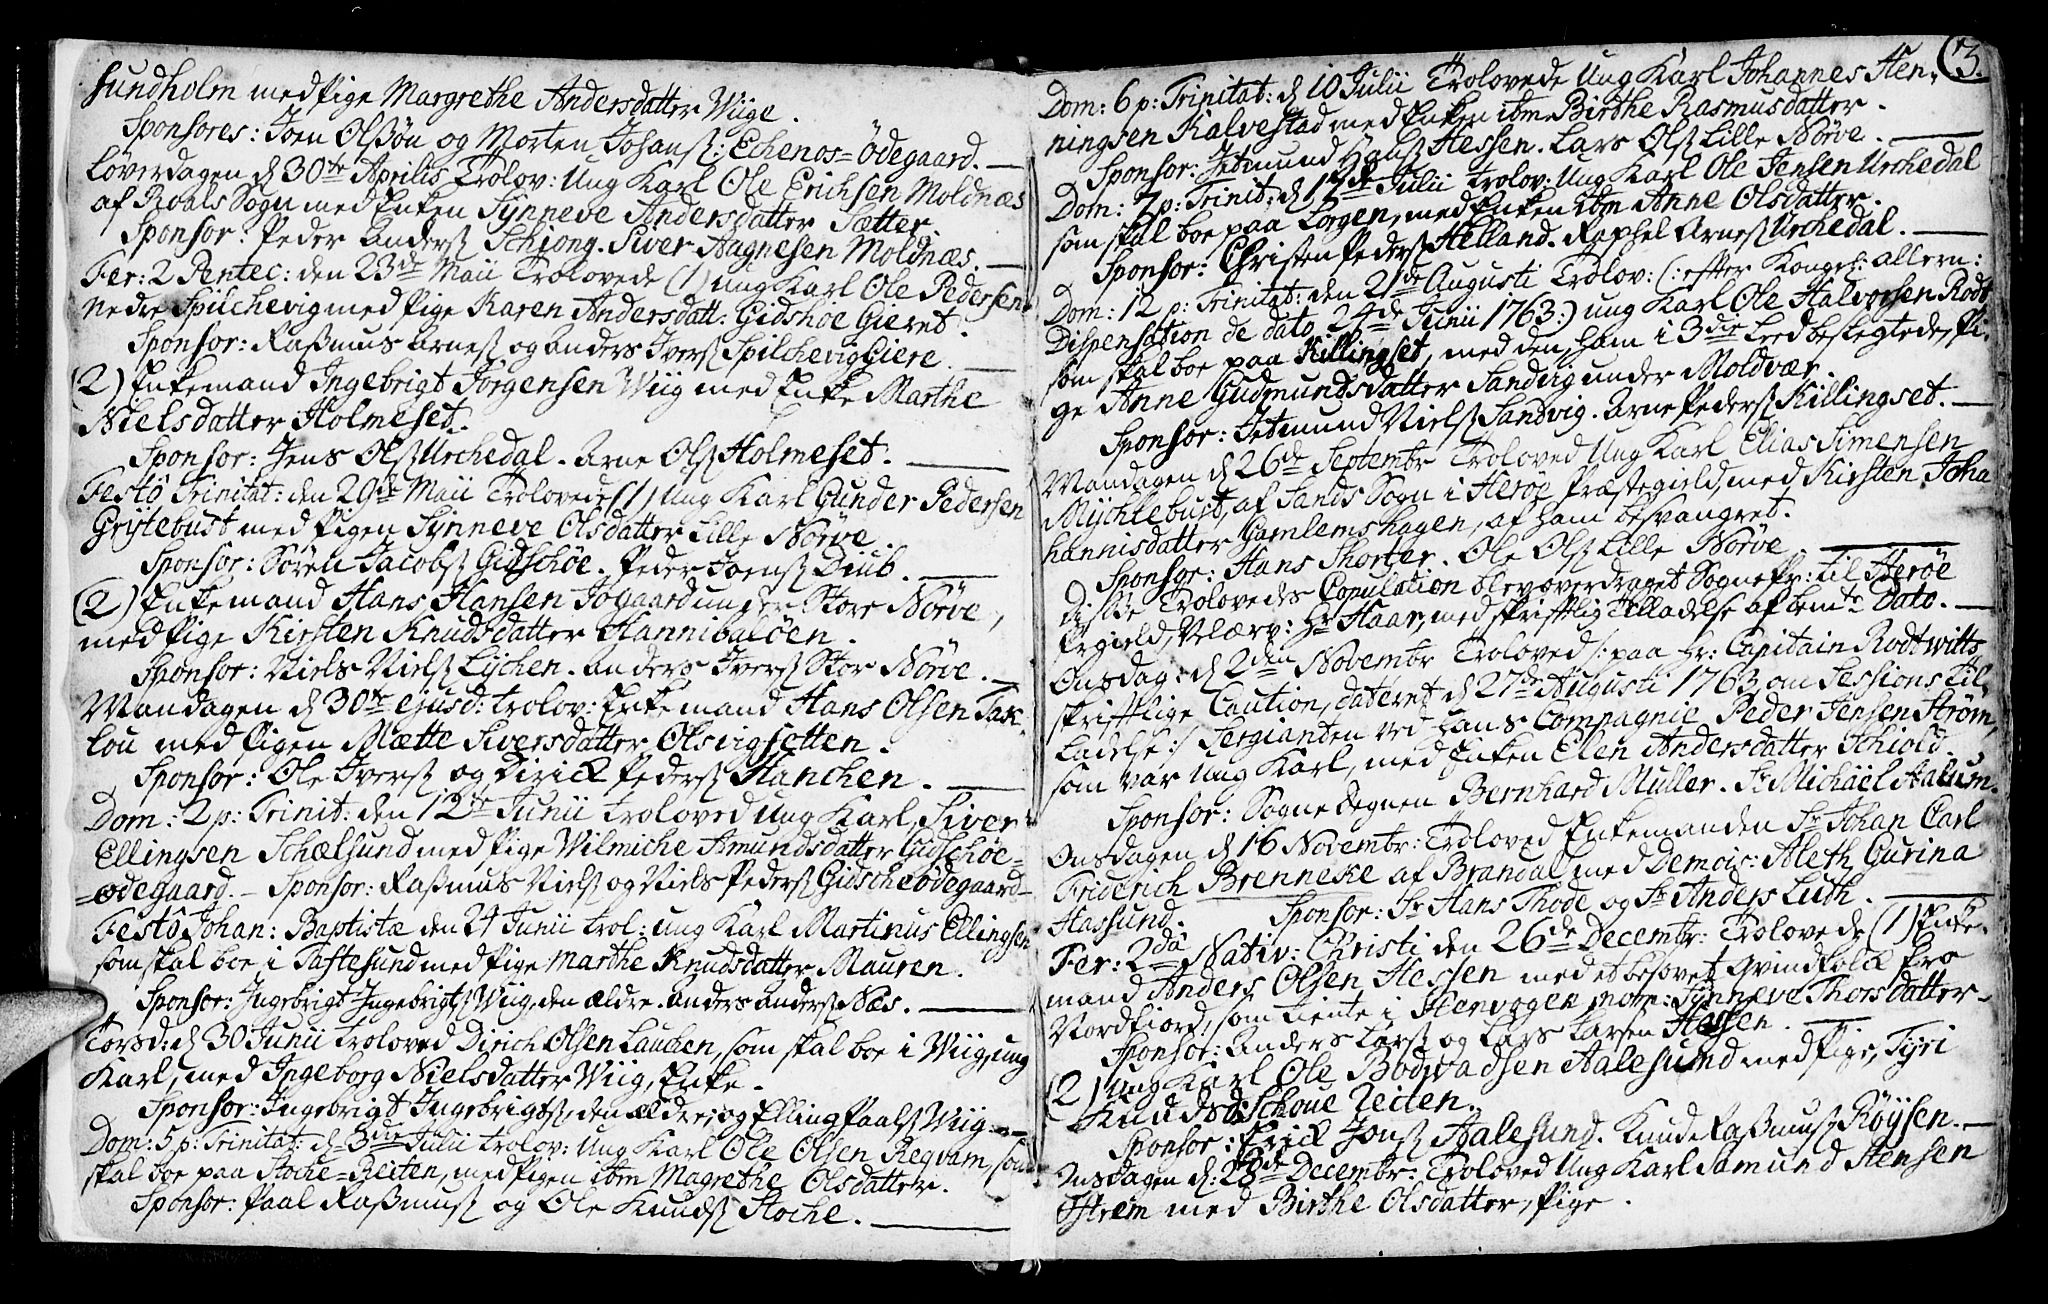 Sundholm med Pige Margrethe Andersdatter Wiige.
Sponsores: Joen Olssøn og Morten Johanß: Echenos=Ødegaard.
Løverdagen d 30te Aprilis Trolov: Ung Karl Ole Erichsen Moldnæs
af Roals Sogn med Enken Synneve Andersdatter Sætter.
Sponsor: Peder Anderß Schiong. Siver Hagnesen Moldnæs.
Fer: 2 Pentec: den 23de Maii Trolovede (1) ung Karl Ole Pedersen
Nedre Spilchevig med Pige Karen Andersdatt: Gidshoe Gieret.
Sponsor: Raßmus Arneß og Anders Iverß Spilchevig Giere.
(2) Enkemand Ingebrigt Jørgensen Wiig med Enke Marthe
Nielsdatter Holmeset.
Sponsor: Jens Olß Urchedal. Arne Olß Holmeset.
Festo Trinitat: den 29de Maii Trolovede (1) Ung Karl Gunder Pedersen
Grytebust med Pigen Synneve Olsdatter Lille Nørve.
Sponsor: Søren Jacobß Gidschøe. Peder Joenß Diub.
(2) Enkemand Hans Hansen Jogaard under Store Nørve,
med Pige Kirsten Knudsdatter Hannibaløen.
Sponsor: Niels Nielß Lychen. Anders Iverß Stor Nørve.
Mandagen d 30te ejusd: trolov: Enkemand Hans Olsen Tax-
lou med Pigen Mætte Siversdatter Olsvigsotten.
Sponsor: Ole Iverß og Dirick Pederß Hanchen.
Dom: 2 p: Trinit: den 12te Junii troloved ung Karl Siver
Ellingsen Schælsund med Pige Wilmiche Amundsdatter Gidschøe=
=ødegaard. Sponsor: Raßmus Nielß og Niels Pederß Gidscheødegaard
Festo Johan: Baptistæ den 24 Junii trol: ung Karl Martinus Ellingsen
som skal boe i Taftesund med Pige Marthe Knudsdatter Mauren.
Sponsor: Ingebrigt Ingebrigtß Wiig, den ældre. Anders Anderß Næs.
Torsd: d 30 Junii troloved Dirich Olsen Lauchen, som skal boe i Wiig, ung
Karl, med Ingeborg Nielsdatter Wiig, Enke.
Sponsor: Ingebrigt Ingebrigtß, den ældre, og Elling Paalß Wiig
Dom: 5 p: Trinitat: d 3die Julii trolov: Ung Karl Ole Olsen Reqvam, som
skal boe paa Hoche=Reiten, med Pigen ibm Magrethe Olsdatter.
Sponsor: Paal Raßmusß og Ole Knudß Hoche.
3.
Dom: 6 p: Trinitat: d 10 Julii Trolovede Ung Karl Johannes Hen-
ningsen Kalvestad med Enken ibm Birthe Rasmusdatter.
Sponsor: Jetmund Hanß Hessen. Lars Olß Lille Nørve.
Dom: 7 p: Trinit: d 17de Julii trolov: ung Karl Ole Jensen Urchedal
som skal boe paa Lorgen, med Enken ibm Anne Olsdatter.
Sponsor: Christen Pederß Helland. Raphel Arneß Urchedal.
Dom: 12 p: Trinitat: den 21de Augusti Trolov: (: efter Kongel: allern:
Dispensation de dato 24de Junii 1763:) ung Karl Ole Halvorsen Rødt
som skal boe paa Killingset, med den, ham i 3die Leed beslegtede, Pi-
ge Anne Gudmundsdatter Sandvig under Moldvær.
Sponsor: Jetmund Nielß Sandvig. Arne Pederß Killingset.
Mandagen d 26de Septembr Troloved Ung Karl Elias Simensen
Mychlebust, af Sands Sogn i Herøe Præstegield, med Kirsten Joha
hannisdatter Gamlemshagen, af ham besvangret.
Sponsor: Hans Skorter. Ole Olß Lille Nørve.
Disse Trolovedes Copulation blev overdraget Sognepr: til Herøe
Prgield, Velærv: Hr Haar, med skriftlig Tilladelse af bemte Dato.
Onsdag: d 2den Novembr Troloved /: paa Hr: Capitain Rodtwitts
skriftlige Caution, dateret d 27de Augusti 1763, om Sessions Til-
ladelse :/ Sergianten ved hans Compagnie Peder Jensen Strøm,
som var ung Karl, med Enken Elen Andersdatter Schiold.
Sponsor: Sognedegnen Bernhard Müller. Sr Michäel Aalum.
Onsdagen d 16 Novembr: Troloved Enkemanden Sr Johan Carl
Friderich Brenneke af Brandal med Demois: Aleth Gurina
Hassund. Sponsor: Sr Hans Thode og Sr Anders Luth.
Fer: 2da Nativ: Christi den 26de Decembr: Trolovede (1) Enke-
mand Anders Olsen Hessen med et besovet Qvindfolk fra
Nordfiord, som tiente i Hervogen, Synneve Thorsdatter
Sponsor: Anders Larß og Lars Larsen Hessen.
(2) Ung Karl Ole Bodvadsen Aalesund med Pige, Tyri
Knudsd: Schoue Reiten.
Sponsor: Erick Jonß Aalesund. Knud Raßmusß Røysen.
Onsdagen d: 28de Decembr: Troloved Ung Karl Samund Stensen
Østrem med Birthe Olsdatter, Pige.